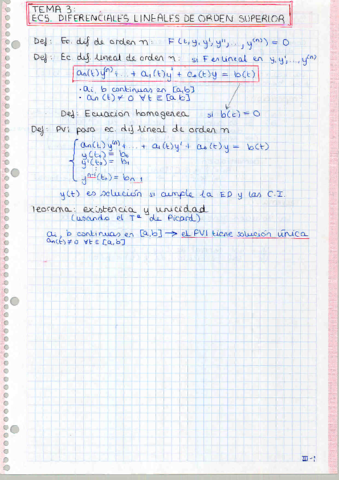 TEMA 3:
ECS. DIFERENCIALES LINEALES DE ORDEN SUPERIOR
Def: Ec dif de orden n: F(t,y,y',y'',...,y⁽ⁿ⁾) = 0
Def: Ec dif lineal de orden n si F es lineal en y,y',...,y⁽ⁿ⁾
aₙ(t)y⁽ⁿ⁾+ ... + a₁(t)y' + a₀(t)y = b(t)
· aᵢ, b continuas en [a,b]
· aₙ(t) ≠ 0 ∀t ∈ [a,b]
Def: Ecuacion homogenea si b(t) = 0
Def: PVI para ec dif lineal de orden n
aₙ(t)y⁽ⁿ⁾ + ... + a₁(t)y' + a₀(t)y = b(t)
y(t₀) = b₀
y'(t₀) = b₁
y⁽ⁿ⁻¹⁾(t₀) = bₙ₋₁
y(t) es solución si cumple la ED y las C.I
Teorema: existencia y unicidad
(usando el Tª de Picard)
aᵢ, b continuas en [a,b] → el PVI tiene solución única
aₙ(t) ≠ 0 ∀t ∈ [a,b]
III-1